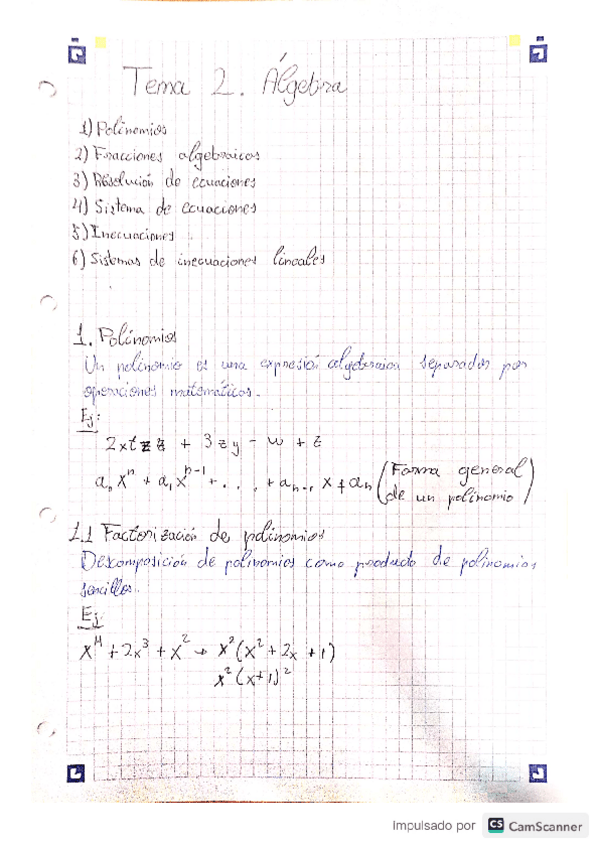 Tema 2. Álgebra
1) Polinomios
2) Fracciones algebraicas
3) Resolución de ecuaciones
4) Sistema de ecuaciones
5) Inecuaciones
6) Sistemas de inecuaciones lineales
1. Polinomios
Un polinomio es una expresión algebraica separadas por
operaciones matemáticas.
Ej:
+ 3zy - w + z
a₀xⁿ + a₁xⁿ⁻¹ + . . . + aₙ₋₁ x + aₙ (Forma general
de un polinomio)
1.1 Factorización de polinomios
Descomposición de polinomios como producto de polinomios
sencillos.
Ej:
x⁴ + 2x³ + x² → x²(x² + 2x + 1)
x²(x+1)²
Impulsado por CS CamScanner